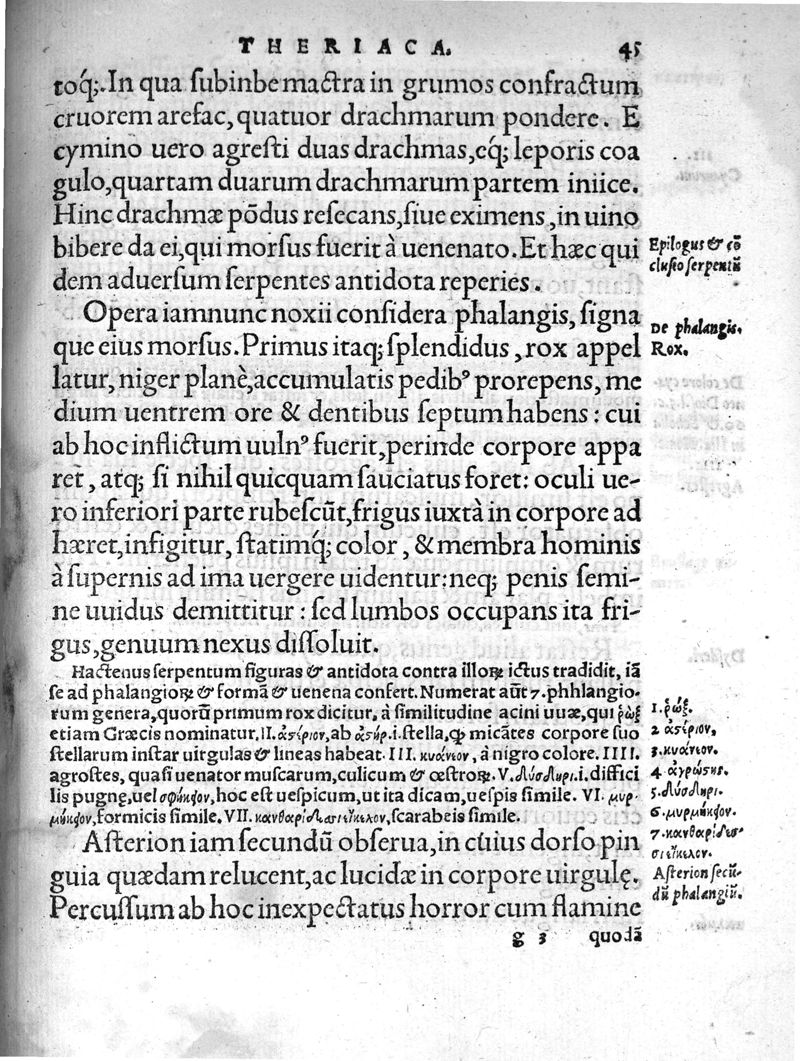 THERIACA. 45
toq́;. In qua subinbe mactra in grumos confractum
cruorem arefac, quatuor drachmarum pondere. E
cymino uero agresti duas drachmas, eq́; leporis coa
gulo, quartam duarum drachmarum partem iniice.
Hinc drachmæ põdus resecans, siue eximens, in uino
bibere da ei, qui morsus fuerit à uenenato. Et hæc qui
dem aduersum serpentes antidota reperies.
Epilogus & cõ
clusio serpentũ
Opera iamnunc noxii considera phalangis, signa
que eius morsus. Primus itaq; splendidus, rox appel
latur, niger planè, accumulatis pedibꝰ prorepens, me
dium uentrem ore & dentibus septum habens: cui
ab hoc inflictum uulnꝰ fuerit, perinde corpore appa
ret, atq; si nihil quicquam sauciatus foret: oculi ue-
ro inferiori parte rubescũt, frigus iuxtà in corpore ad
hæret, infigitur, statimq́; color, & membra hominis
à supernis ad ima uergere uidentur: neq; penis semi-
ne uuidus demittitur: sed lumbos occupans ita fri-
gus, genuum nexus dissoluit.
De phalangis.
Rox.
Hactenus serpentum figuras & antidota contra illoꝝ ictus tradidit, iã
se ad phalangioꝝ & formã & uenena confert. Numerat aũt 7. phhlangio-
rum genera, quorũ primum rox dicitur, à similitudine acini uuæ, qui ῥώξ
etiam Græcis nominatur. II. ἀστέριον, ab ἀστήρ .i. stella, ꝙ micãtes corpore suo
stellarum instar uirgulas & lineas habeat. III. κυάνεον, à nigro colore. IIII.
agrostes, quasi uenator muscarum, culicum & œstroꝝ. V. δύσδηρι .i. diffici
lis pugnę, uel σφήκιον, hoc est uespicum, ut ita dicam, uespis simile. VI. μυρ-
μήκιον, formicis simile. VII. κανθαρίδεσσιείκελον, scarabeis simile.
1. ῥώξ.
2 ἀστέριον,
3. κυάνεον.
4 ἀγρώστης.
5. δύσδηρι.
6. μυρμήκιον.
7. κανθαρίδεσ-
σιείκελον.
Asterion iam secundũ obserua, in cuius dorso pin
guia quædam relucent, ac lucidæ in corpore uirgulę.
Percussum ab hoc inexpectatus horror cum flamine
Asterion secũ-
dũ phalangiũ.
g 3 quodã